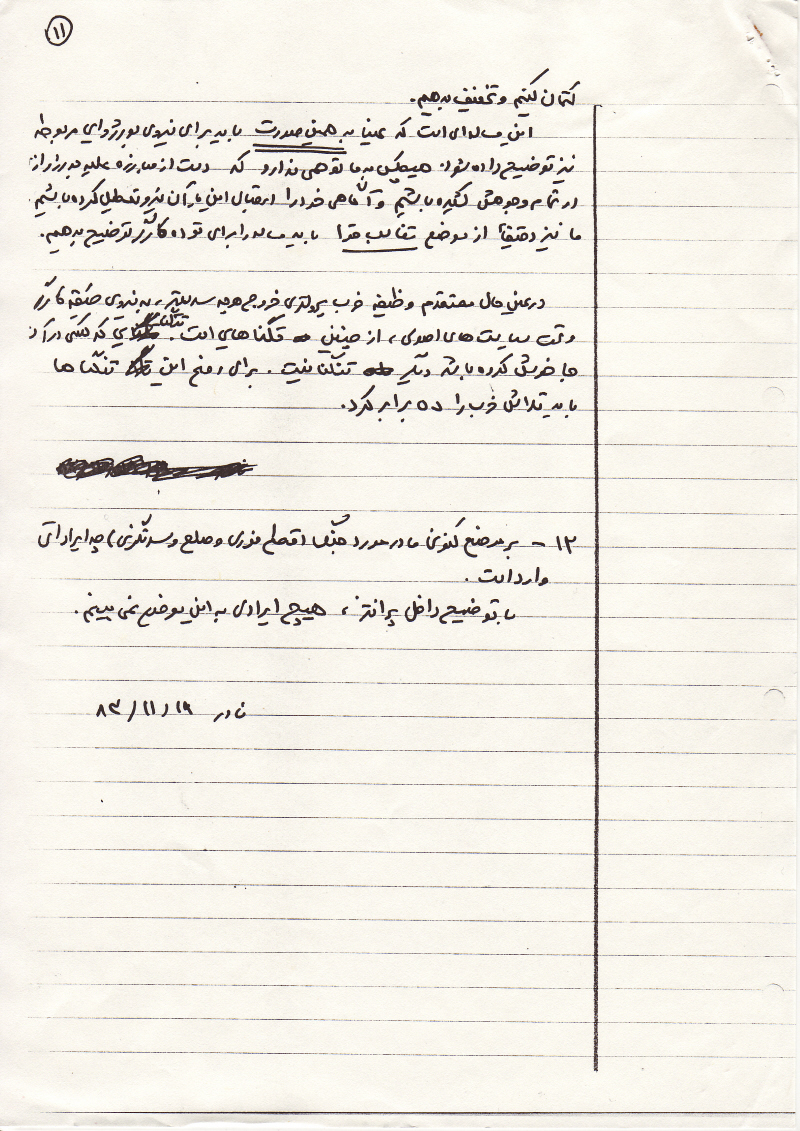 ۱۱
کتمان کنیم و تخفیف بدهیم.
این مساله‌ای است که عیناً به همین صورت باید برای نیروی بورژوای مربوطه
نیز توضیح داده شود. هیچکس به ما توهمی ندارد که دست از مبارزه علیه بورژوازی
در تمام وجوهش کشیده باشیم و آگاهی خود را در قبال این یا آن نیرو تعطیل کرده باشیم.
ما نیز دقیقاً از موضع تناسب قوا باید مساله را برای توده کارگر توضیح بدهیم.
در عین حال معتقدم وظیفه خروج هر چه سریعتر، به نیروی طبقه کارگر
و تحت سیاست‌های اصولی، از چنین تنگناهایی است. تنگنایی که کسی در آن
جا خوش کرده باشد دیگر تنگنا نیست. برای رفع این تنگناها
باید تلاش خود را ده برابر کرد.
۱۲ - بر موضع کنونی ما در مورد جنگ (قطع فوری و صلح و سرنگونی) چه ایراداتی
وارد است.
با توضیح داخل پرانتز، هیچ ایرادی به این موضع نمی بینم.
نادر ۸۳/۱۱/۱۹